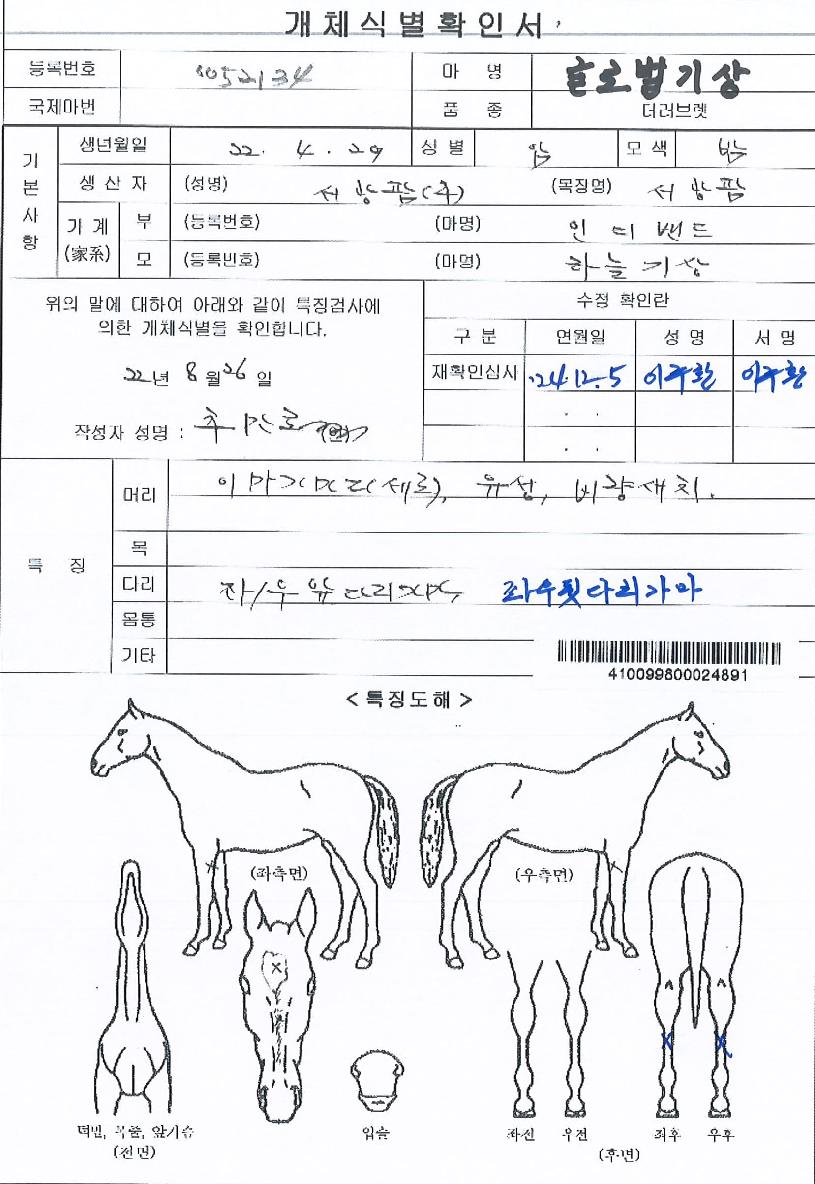 개체식별확인서
등록번호 0052134 마 명 글로벌기상
국제마번 품 종 더러브렛
기본사항
생년월일 22. 4. 29 성 별 암 모 색 밤
생 산 자 (성명) 서창팜(주) (목장명) 서창팜
기 계 (家系) 부 (등록번호) (마명) 인디밴드
모 (등록번호) (마명) 하늘기상
위의 말에 대하여 아래와 같이 특징검사에
의한 개체식별을 확인합니다.
22년 8월 26일
작성자 성명 :
수정 확인란
구 분 연월일 성 명 서 명
재확인심사 '24.12.5
특 징
머리 이마가마고(세로), 유성, 비량새치.
목
다리 좌/우 앞다리가마, 좌우뒷다리가마
몸통
기타
410099800024891
<특징도해>
(좌측면)
(우측면)
턱밑, 목줄, 앞가슴
(전면)
입술
좌전 우전
좌후 우후
(후면)